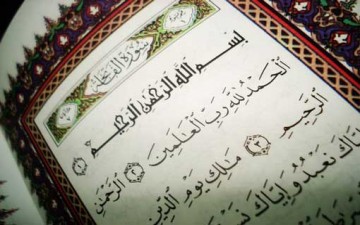 سورة الفاتحة
بِسْمِ اللَّهِ الرَّحْمَٰنِ الرَّحِيمِ
الْحَمْدُ لِلَّهِ رَبِّ الْعَالَمِينَ ٢ الرَّحْمَٰنِ
الرَّحِيمِ ٣ مَالِكِ يَوْمِ الدِّينِ
إِيَّاكَ نَعْبُدُ وَإِيَّاكَ